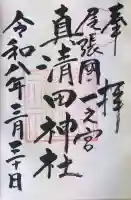 奉拝
尾張國一之宮
真清田神社
令和八年三月三十日